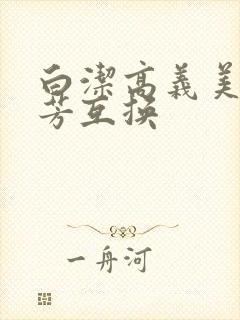 白潔高義美
芳互换
一舟河